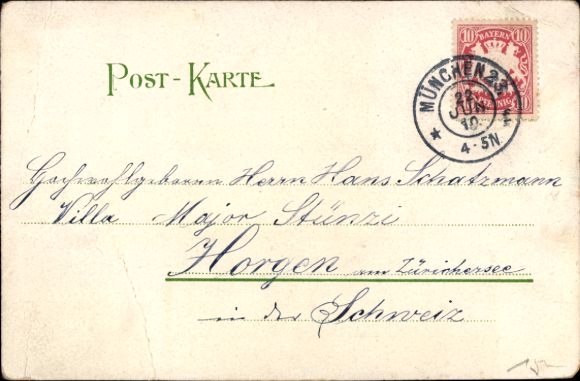 BAYERN
10 10
POST-KARTE
MÜNCHEN 23.
22
JUN
10.
4-5N.
Hochwohlgeboren Herrn Hans Schatzmann
Villa Major Stünzi
Horgen am Zürichersee
in der Schweiz